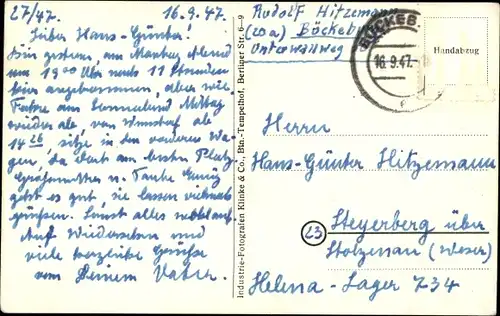 27/47. 16. 9. 47.
Lieber Hans-Günter!
Bin gestern, am Montag Abend
um 19⁰⁰ Uhr nach 11 Stunden
hier angekommen, aber wir
Fahre am Sonnabend Mittag
wieder ab, von Wunstorf ab
14²⁶, sitze in den vorderen Wa-
gen, da dort am besten Platz.
Großmutter u. Tante Emmy
geht es gut, sie lassen vielmals
grüßen. Sonst alles wohlauf.
Auf Wiedersehen und
viele herzliche Grüße
von Deinem Vater.
Industrie-Fotografen Klinke & Co., Bln.-Tempelhof, Berliner Str. 6—9
Rudolf Hitzemann
(20a) Bückeb
Unterwallweg
BÜCKEB
16.9.47.-
Handabzug
Herrn
Hans-Günter Hitzemann
23 Steyerberg über
Stolzenau (Weser)
Helena-Lager 734